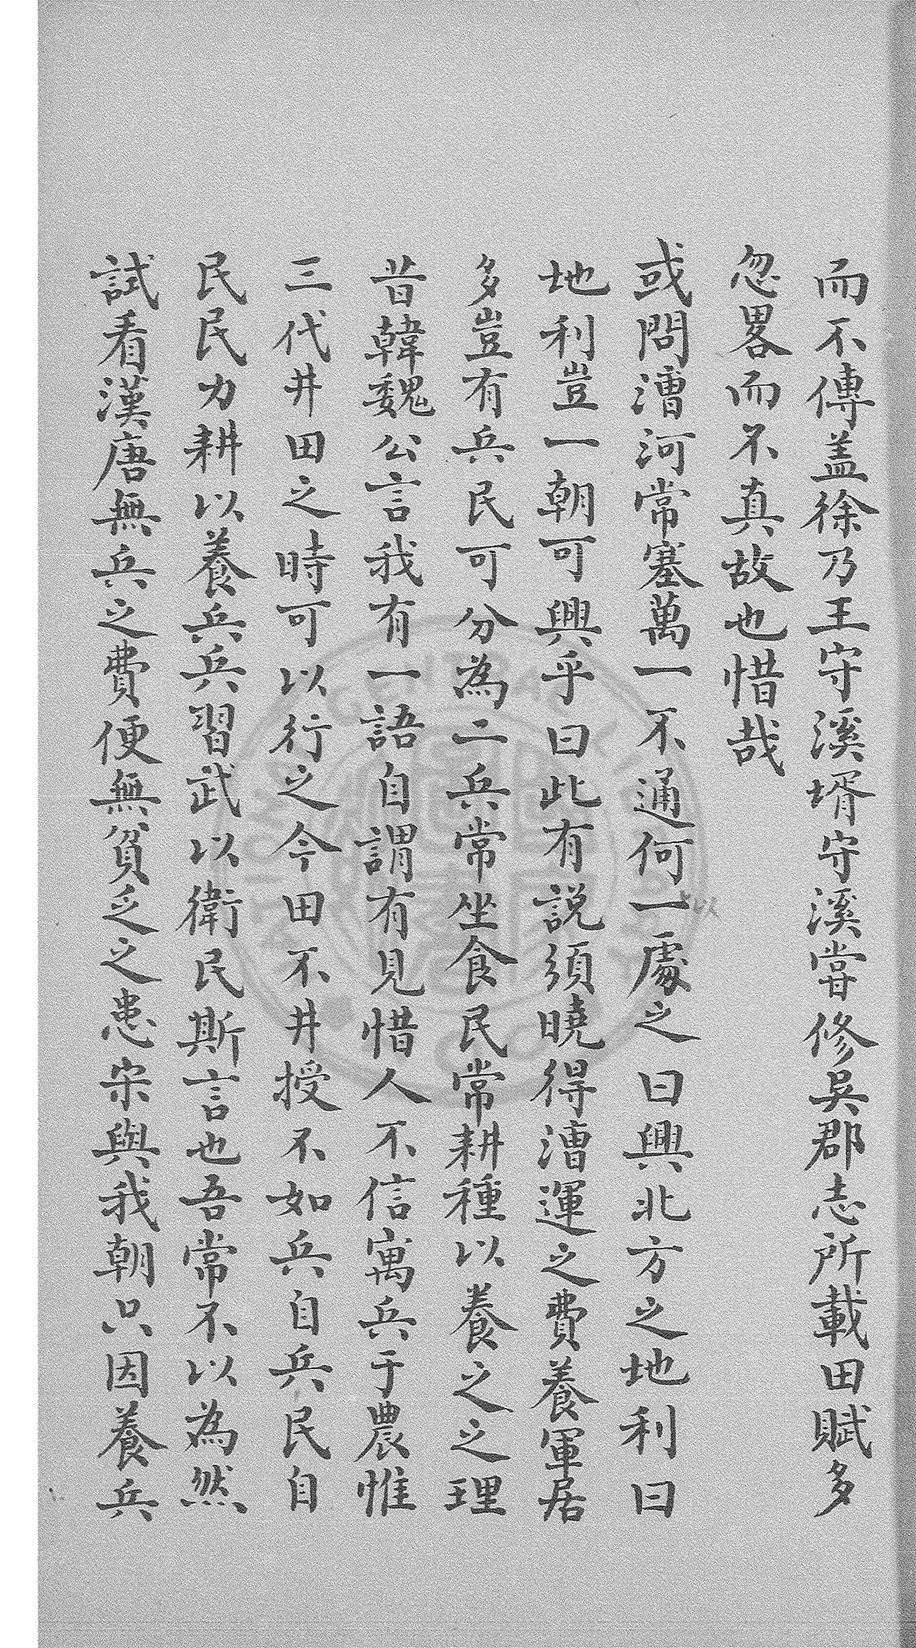 而不傳盖徐乃王守溪壻守溪嘗修吳郡志所載田賦多
忽畧而不真故也惜哉
或問漕河常塞萬一不通何一處之曰興北方之地利曰
地利豈一朝可興乎曰此有説須曉得漕運之費養軍居
多豈有兵民可分為二兵常坐食民常耕種以養之之理
昔韓魏公言我有一語自謂有見惜人不信寓兵于農惟
三代井田之時可以行之今田不井授不如兵自兵民自
民民力耕以養兵兵習武以衛民斯言也吾常不以為然
試看漢唐無兵之費便無貧乏之患宋與我朝只因養兵